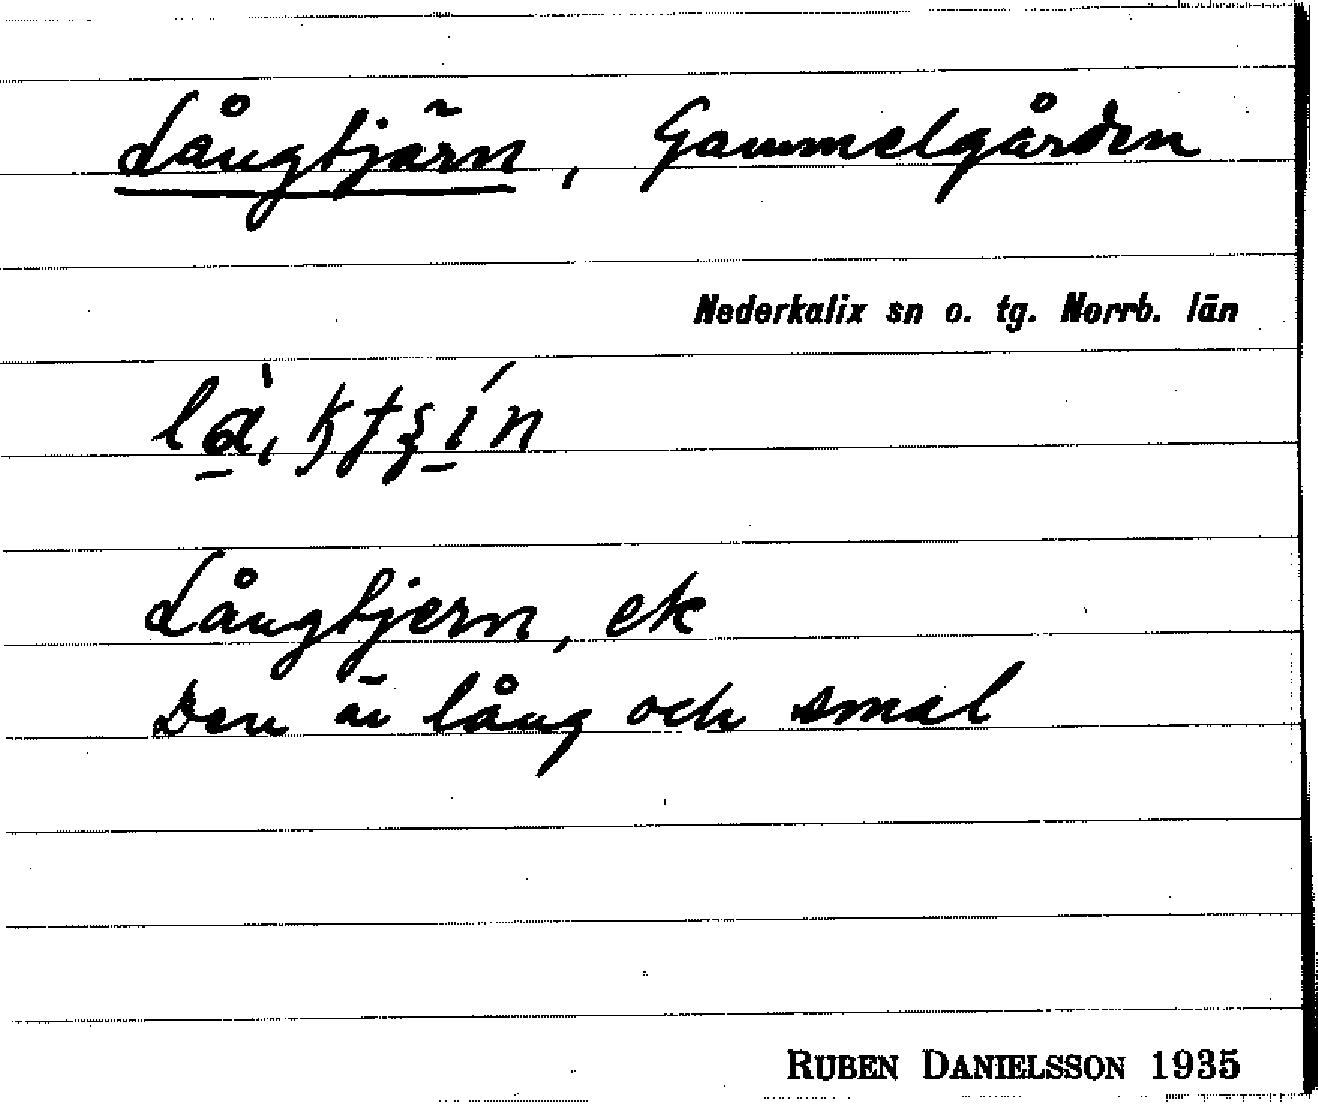 Långtjärn, Gammelgården
Nederkalix sn o. tg. Norrb. län
Långtjern, ek
Den är lång och smal
RUBEN DANIELSSON 1935